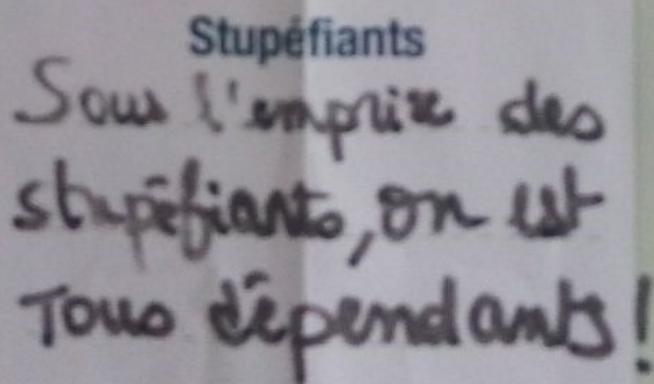 Stupéfiants
Sous l'emprise des
stupéfiants, on est
Tous dépendants !